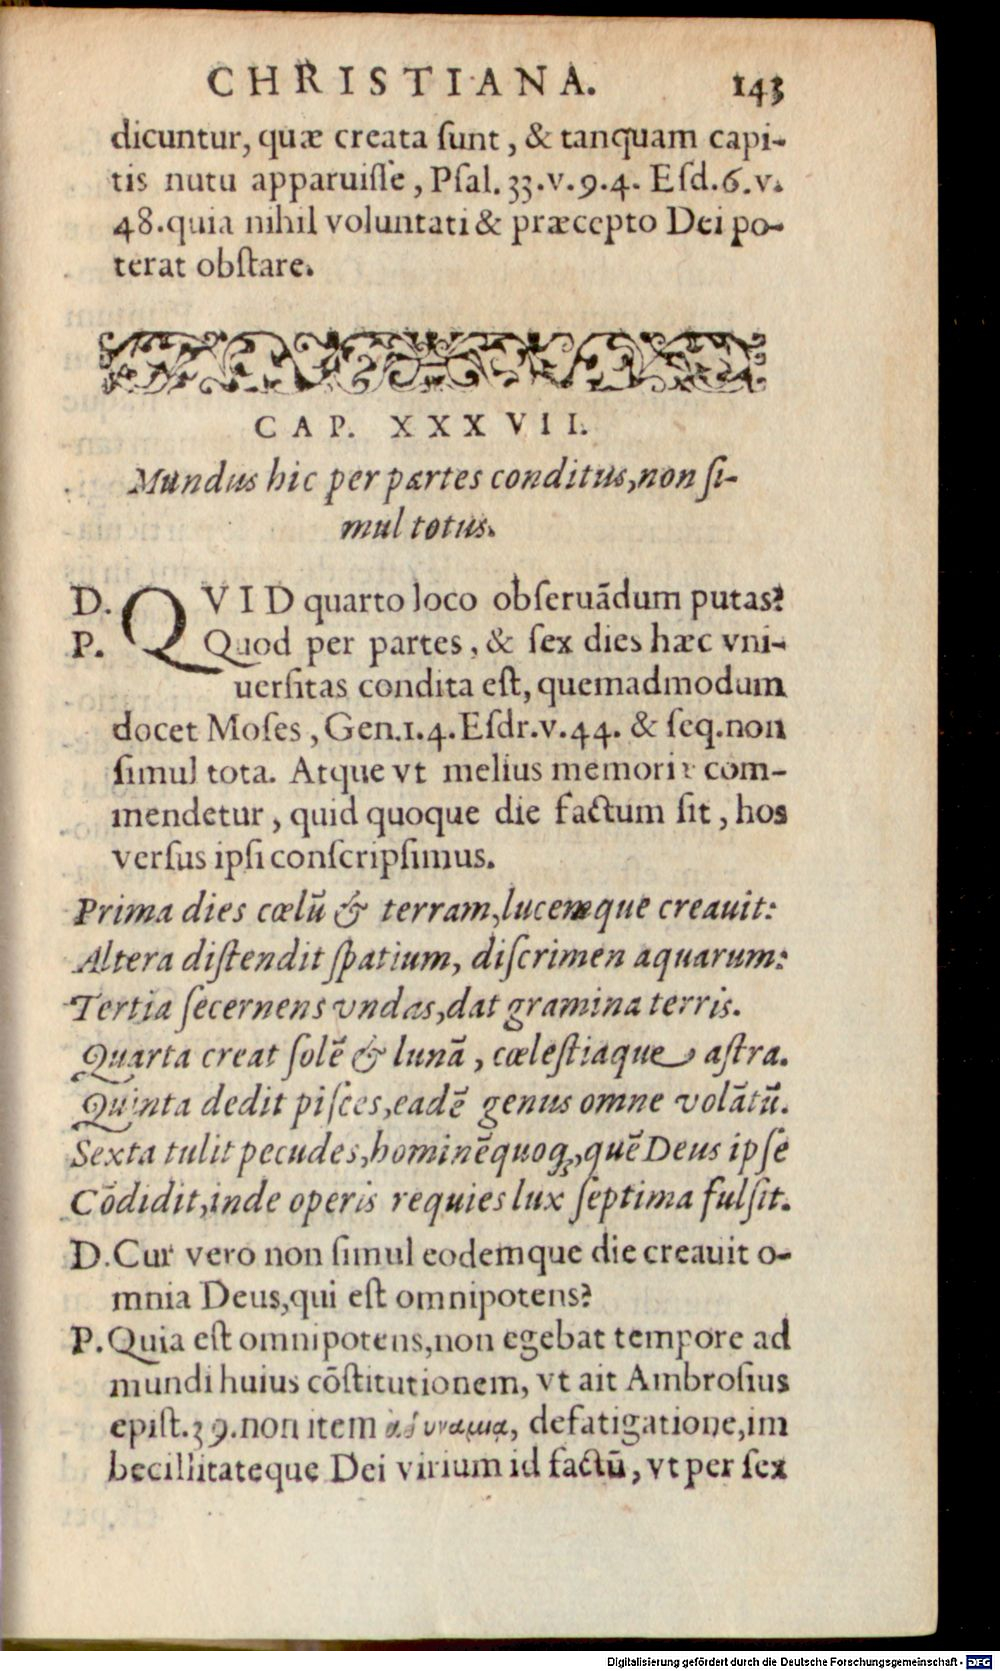 CHRISTIANA. 143
dicuntur, quæ creata ſunt, & tanquam capi-
tis nutu apparuiſſe, Pſal. 33.v.9.4. Eſd.6.v.
48.quia nihil voluntati & præcepto Dei po-
terat obſtare.
CAP. XXXVII.
Mundus hic per partes conditus,non ſi-
mul totus.
D. QVID quarto loco obſeruādum putas?
P. Quod per partes, & ſex dies hæc vni-
uerſitas condita eſt, quemadmodum
docet Moſes, Gen.1.4.Eſdr.v.44. & ſeq.non
ſimul tota. Atque vt melius memoriæ com-
mendetur, quid quoque die factum ſit, hos
verſus ipſi conſcripſimus.
Prima dies cœlū & terram,lucemque creauit:
Altera diſtendit ſpatium, diſcrimen aquarum:
Tertia ſecernens vndas,dat gramina terris.
Quarta creat ſolē & lunā, cœleſtiaque aſtra.
Quinta dedit piſces,eadē genus omne volātū.
Sexta tulit pecudes,hominēquoq;,quē Deus ipſe
Cōdidit,inde operis requies lux ſeptima fulſit.
D. Cur vero non ſimul eodemque die creauit o-
mnia Deus,qui eſt omnipotens?
P. Quia eſt omnipotens,non egebat tempore ad
mundi huius cōſtitutionem, vt ait Ambroſius
epiſt.39.non item ἀδυναμια, defatigatione,im
becillitateque Dei virium id factū, vt per ſex
Digitalisierung gefördert durch die Deutsche Forschungsgemeinschaft - DFG